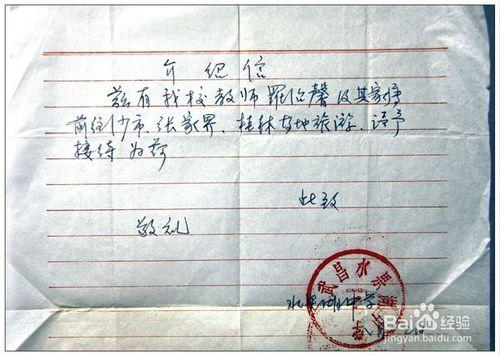 介绍信
兹有我校教师罗怡馨及其家属
前往沙市、张家界、桂林等地旅游、请予
接待为荷
此致
敬礼
水果湖中学
武昌水果湖中学
Baidu 经验
jingyan.baidu.com